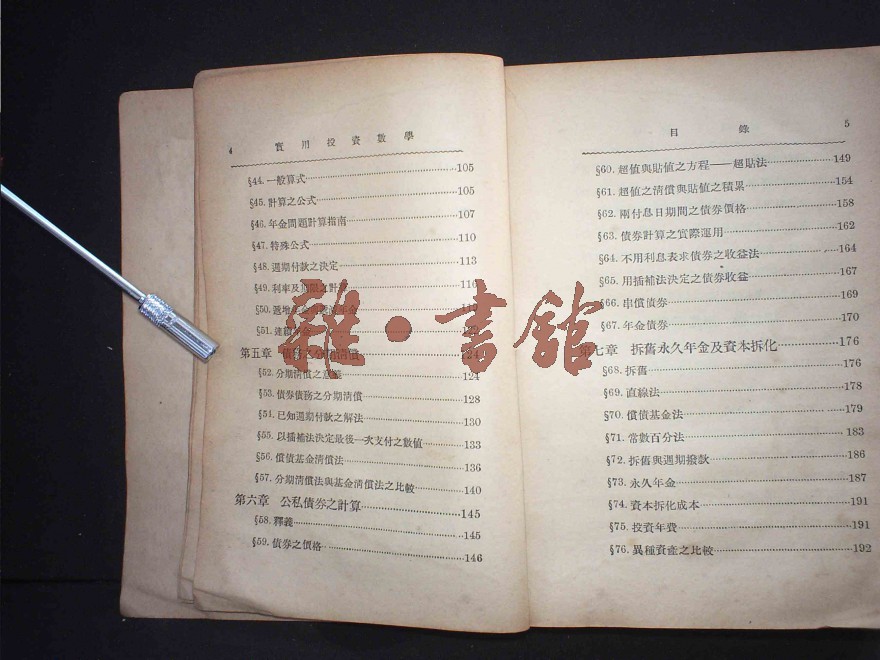 4 實用投資數學
§44. 一般算式 105
§45. 計算之公式 105
§46. 年金問題計算指南 107
§47. 特殊公式 110
§48. 週期付款之決定 113
§49. 利率及期限之計算 116
§50. 遞增年金
§51. 連續年金
第五章 債務之分期清償 124
§52. 分期清償之意義 124
§53. 債券債務之分期清償 128
§54. 已知週期付款之解法 130
§55. 以插補法決定最後一次支付之數值 133
§56. 償債基金清償法 136
§57. 分期清償法與基金清償法之比較 140
第六章 公私債券之計算 145
§58. 釋義 145
§59. 債券之價格 146
目錄 5
§60. 超值與貼值之方程——超貼法 149
§61. 超值之清償與貼值之積累 154
§62. 兩付息日期間之債券價格 158
§63. 債券計算之實際運用 162
§64. 不用利息表求債券之收益法 164
§65. 用插補法決定之債券收益 167
§66. 串償債券 169
§67. 年金債券 170
第七章 拆舊永久年金及資本拆化 176
§68. 拆舊 176
§69. 直線法 178
§70. 償債基金法 179
§71. 常數百分法 183
§72. 拆舊與週期撥款 186
§73. 永久年金 187
§74. 資本拆化成本 191
§75. 投資年費 191
§76. 異種資產之比較 192
雜·書館